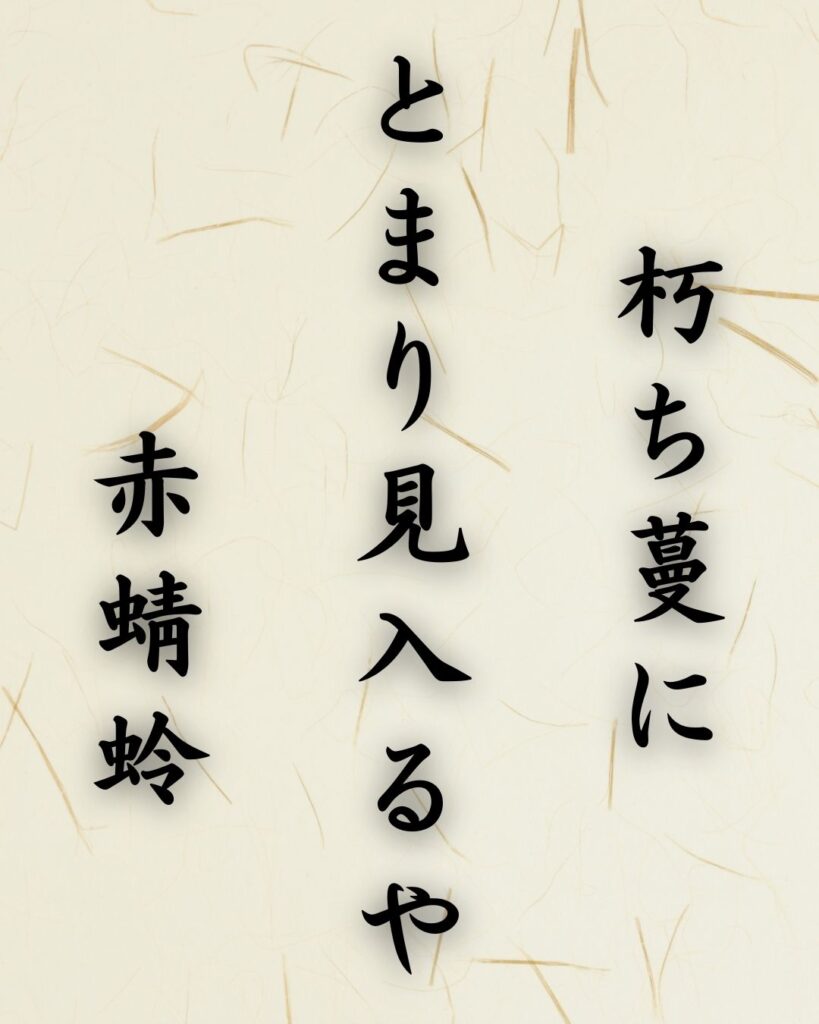 朽ち蔓に
とまり見入るや
赤蜻蛉